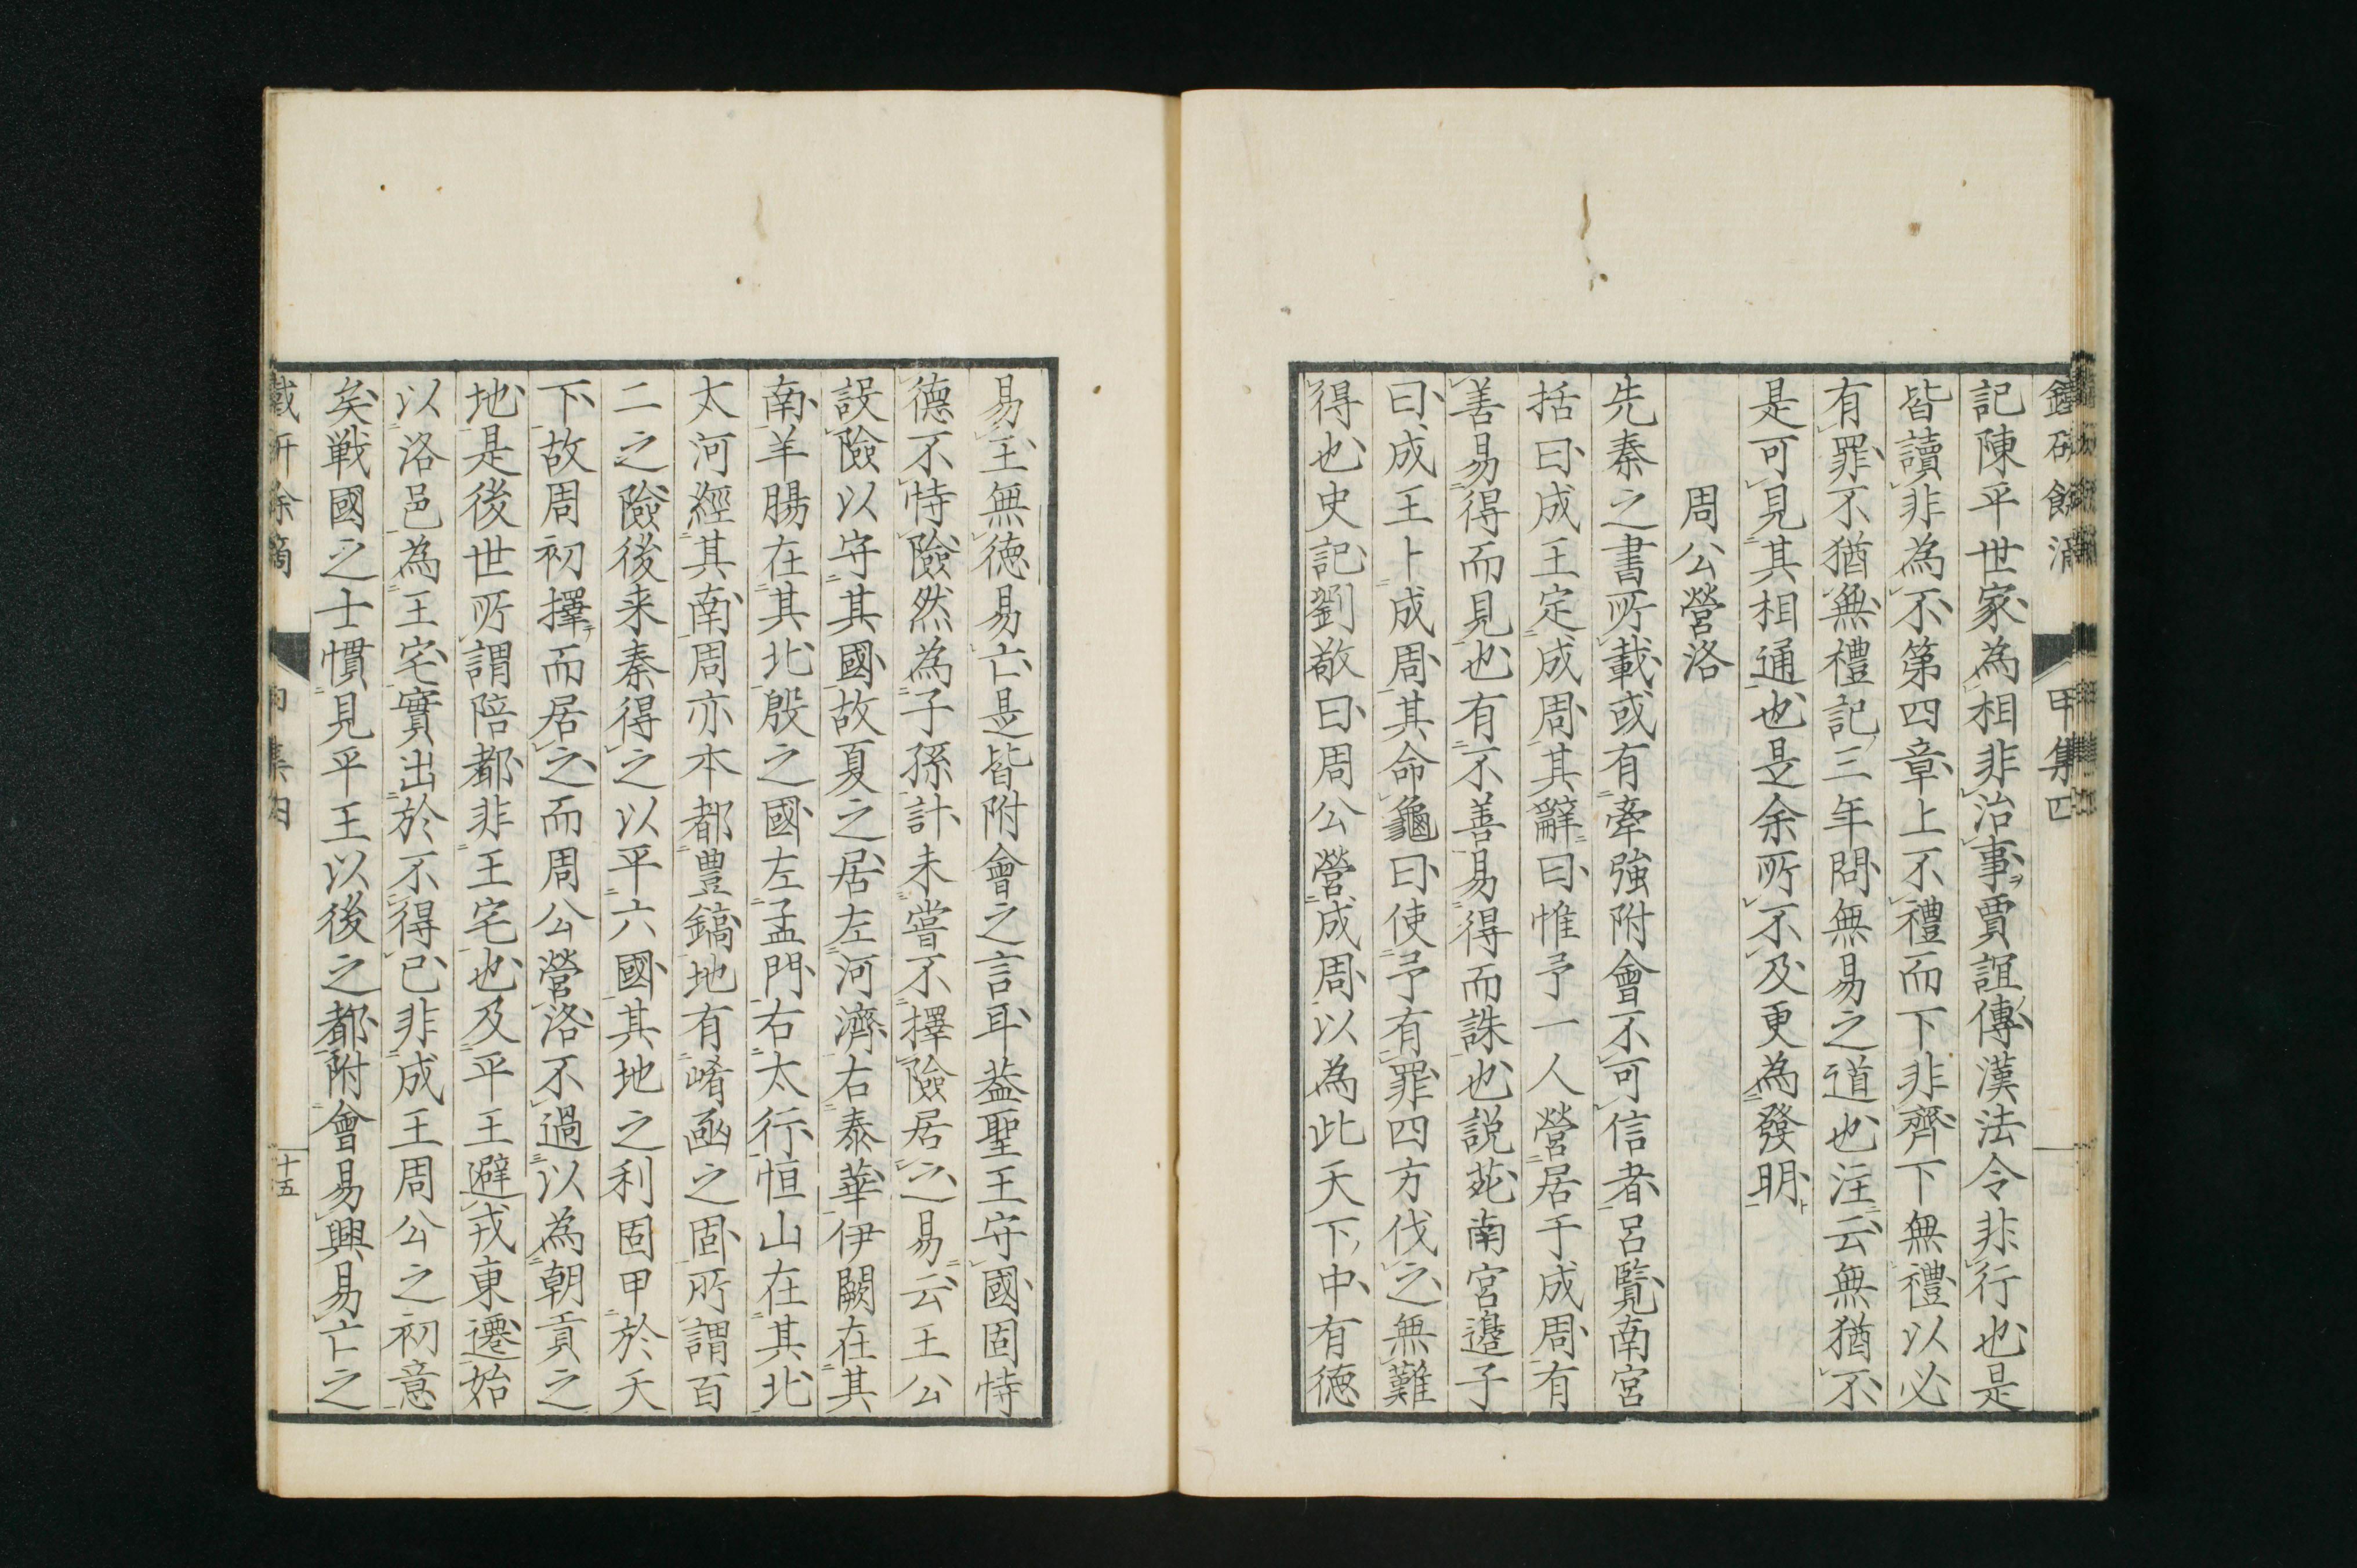 記陳平世家為相非治事ヲ賈誼傳漢法令非行也是
皆讀非為不第四章上不禮而下非齊下無禮以必
有罪不猶無禮記三年問無易之道也注云無猶不
是可見其相通也是余所不及更為發明
周公營洛
先秦之書所載或有牽強附會不可信者呂覽南宮
括曰成王定成周其辭曰惟予一人營居于成周有
善易得而見也有不善易得而誅也説苑南宮邉子
曰成王卜成周其命龜曰使予有罪四方伐之無難
得也史記劉敬曰周公營成周以為此天下中有德
易王無德易亡是皆附會之言耳蓋聖王守國固恃
德不恃險然為子孫計未嘗不擇險居之易云王公
設險以守其國故夏之居左河濟右泰華伊闕在其
南羊腸在其北殷之國左孟門右太行恒山在其北
太河經其南周亦本都豊鎬地有崤函之固所謂百
二之險後来秦得之以平六國其地之利固甲於天
下故周初擇而居之而周公營洛不過以為朝貢之
地是後世所謂陪都非王宅也及平王避戎東遷始
以洛邑為王宅實出於不得已非成王周公之初意
矣戦國之士慣見平王以後之都附會易興易亡之
甲集四
十五